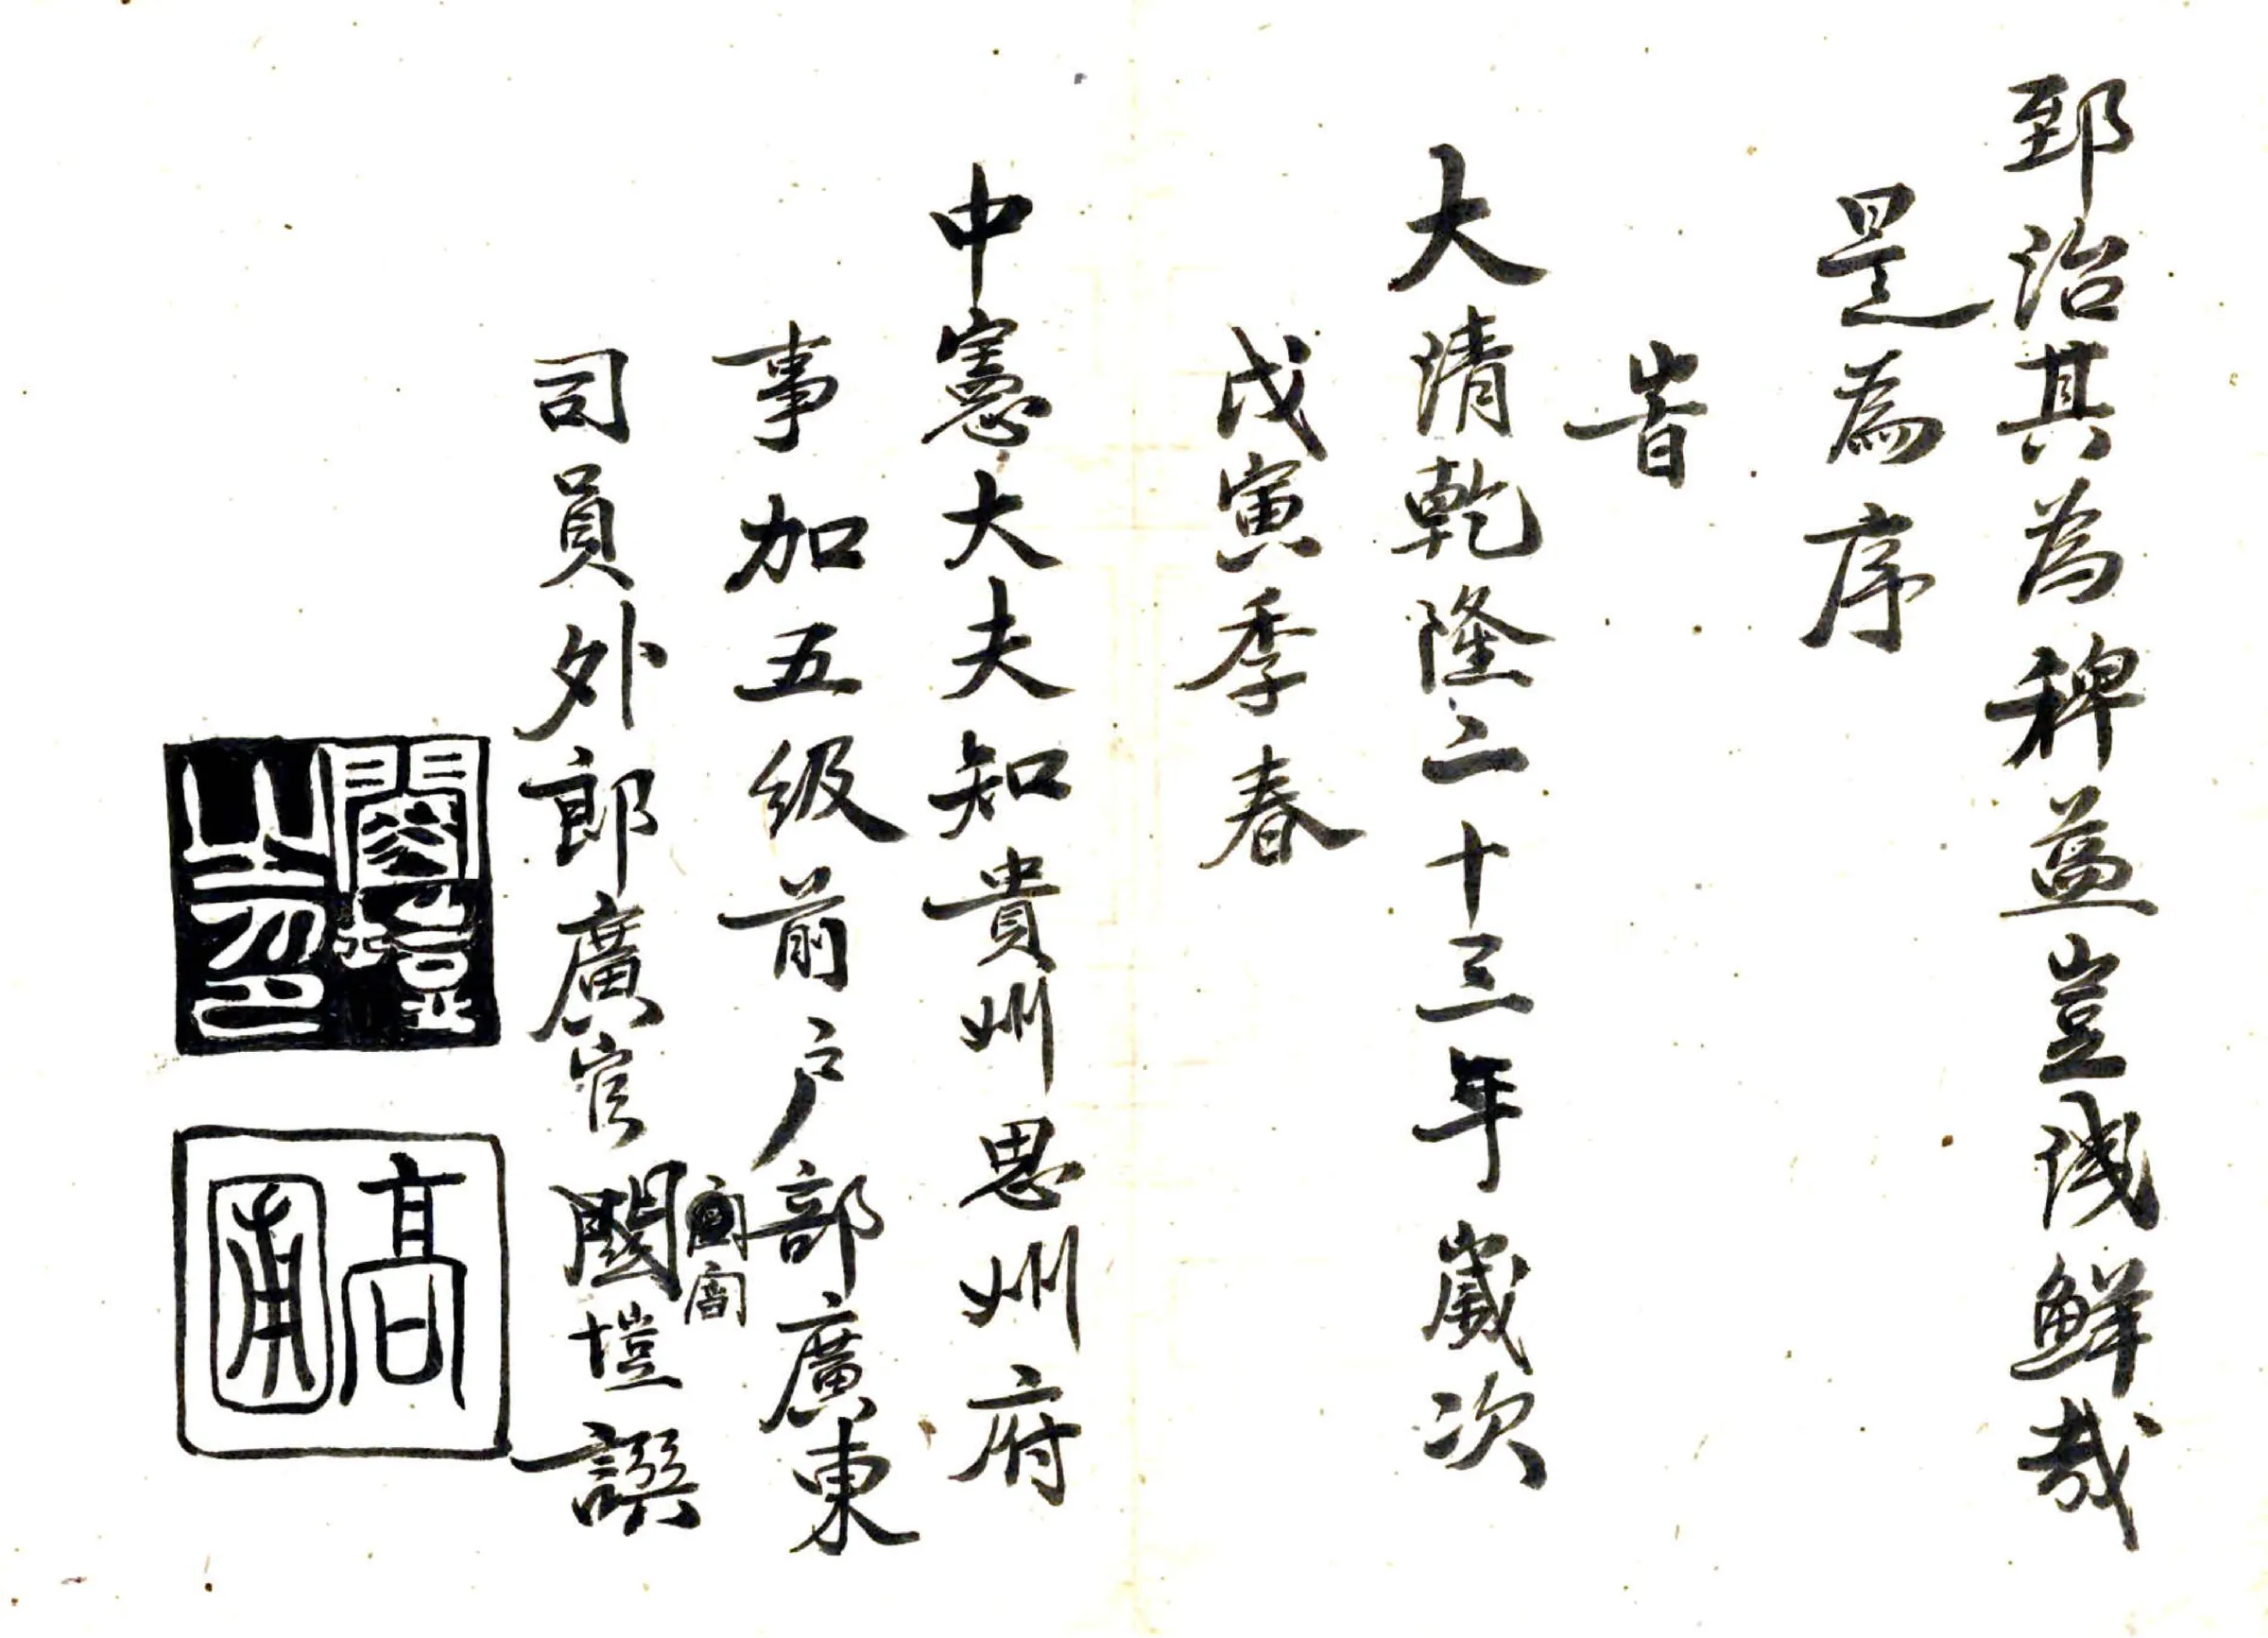 郅治其為稗益豈浅鮮哉
是為序
旹
大清乾隆二十三年歲次
戊寅季春
中憲大夫知貴州思州府
事加五級前户部廣東
司員外郎廣官闞塏譔
闞塏之印
高甫